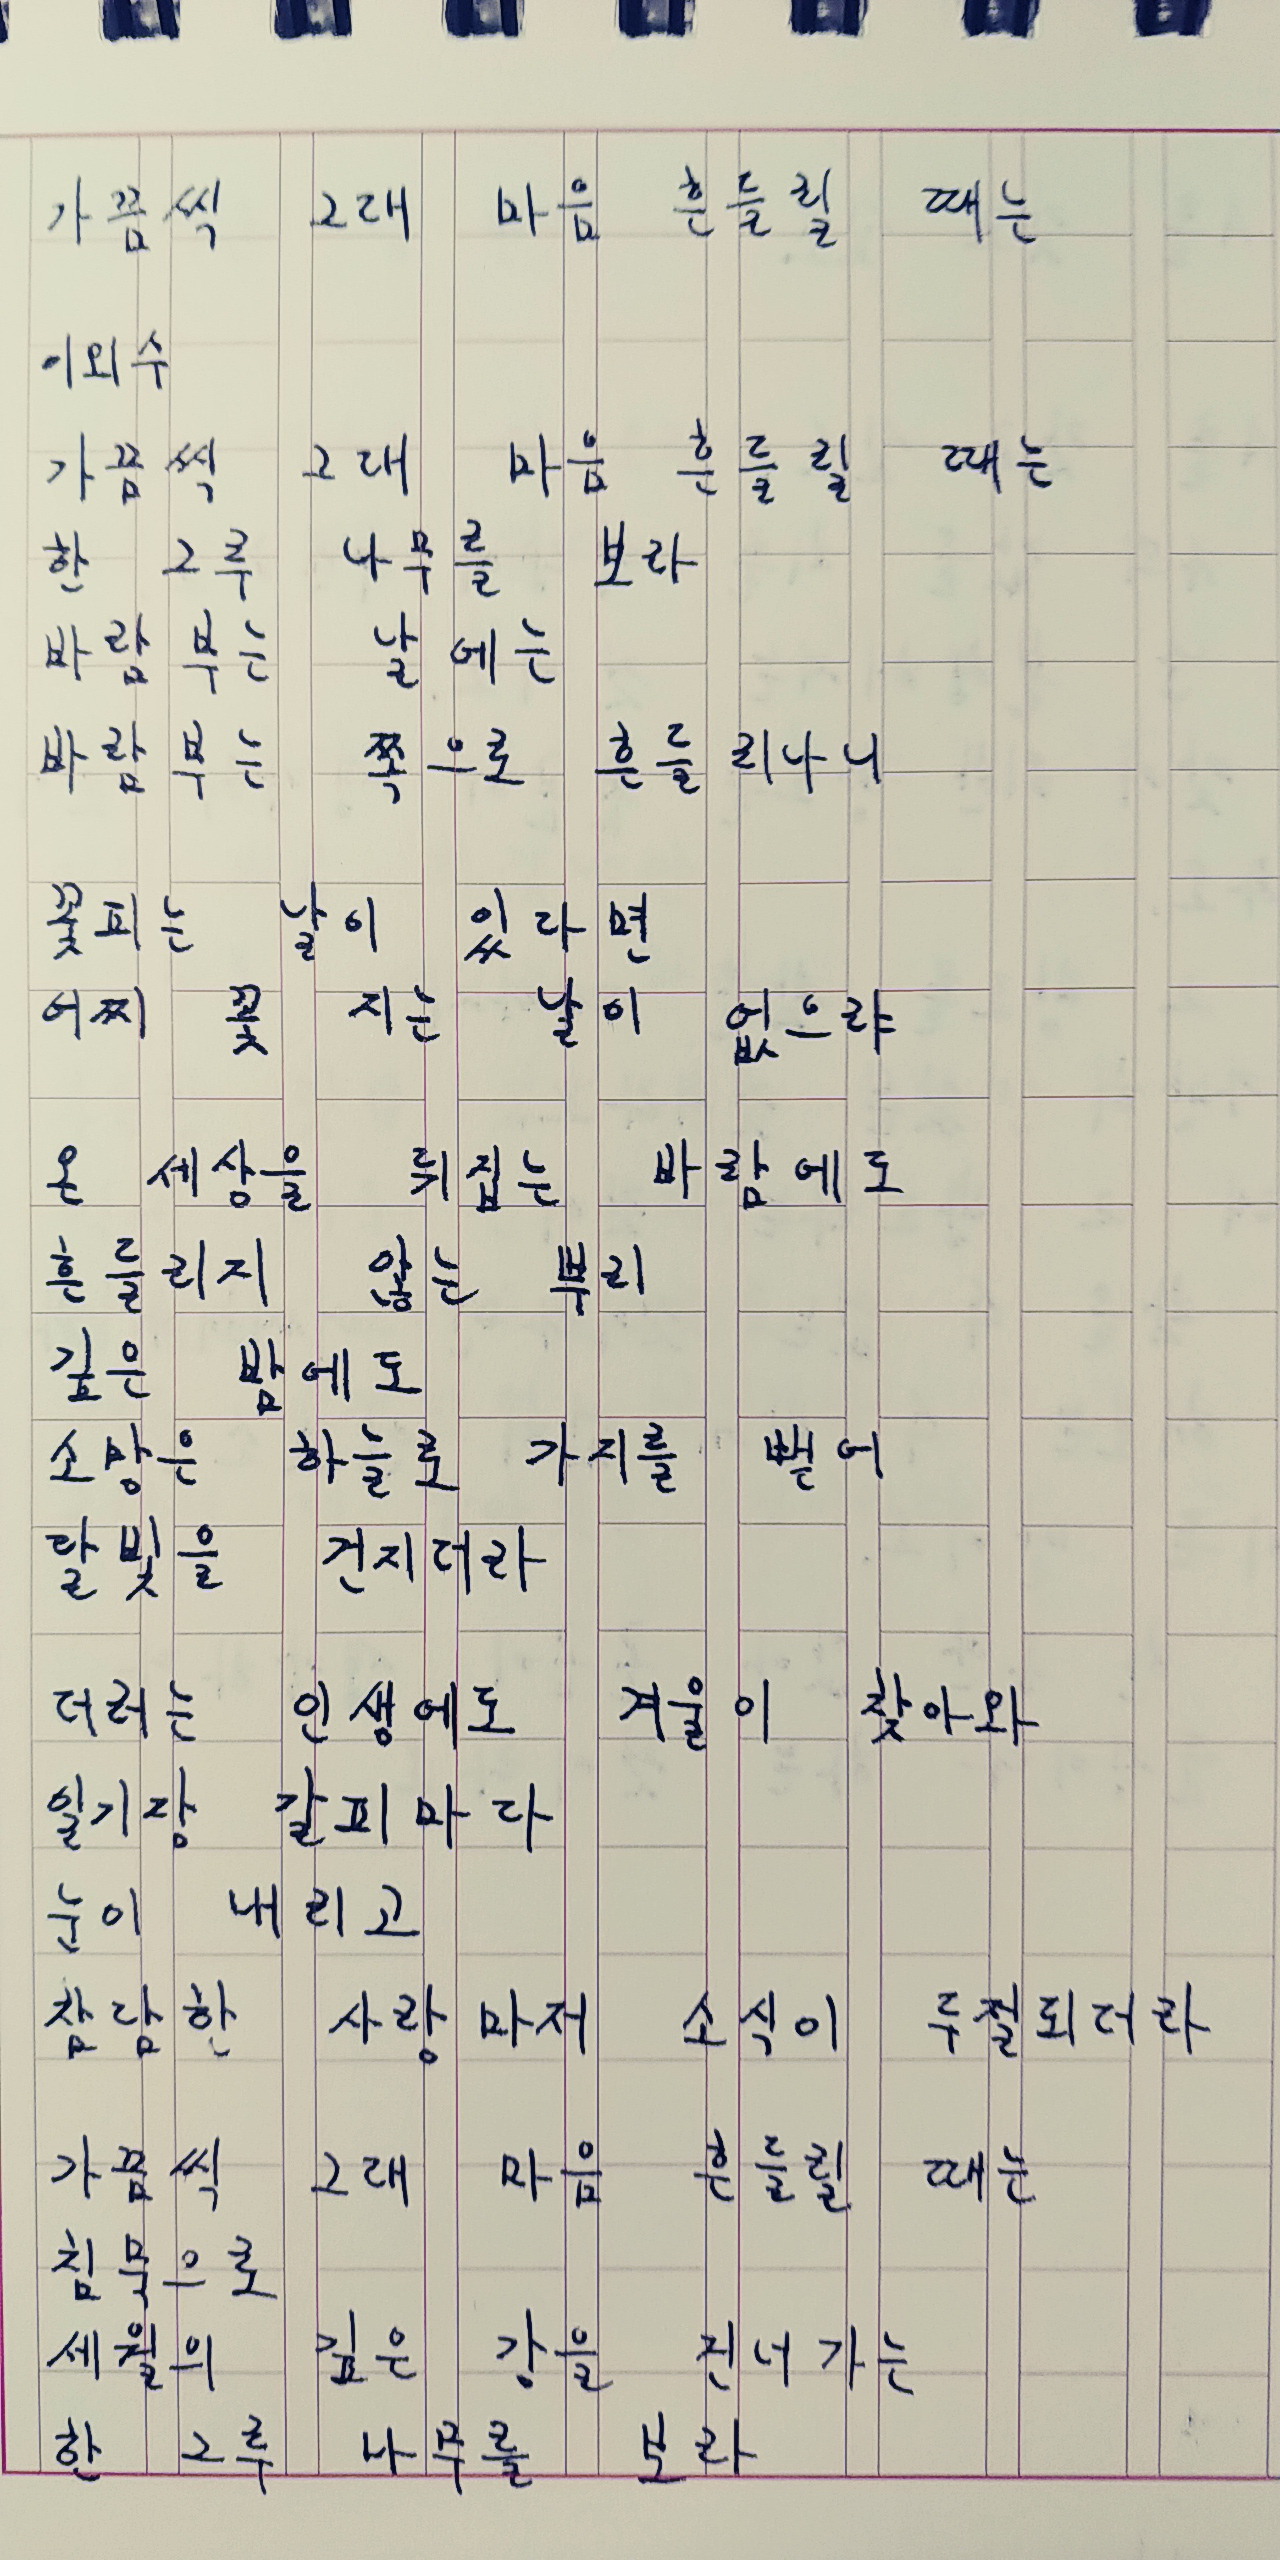 가끔씩 그대 마음 흔들릴 때는
이외수
가끔씩 그대 마음 흔들릴 때는
한 그루 나무를 보라
바람 부는 날에는
바람 부는 쪽으로 흔들리나니
꽃피는 날이 있다면
어찌 꽃 지는 날이 없으랴
온 세상을 뒤집는 바람에도
흔들리지 않는 뿌리
깊은 밤에도
소망은 하늘로 가지를 뻗어
달빛을 건지더라
더러는 인생에도 겨울이 찾아와
일기장 갈피마다
눈이 내리고
참담한 사랑마저 소식이 두절되더라
가끔씩 그대 마음 흔들릴 때는
침묵으로
세월의 깊은 강을 건너가는
한 그루 나무를 보라